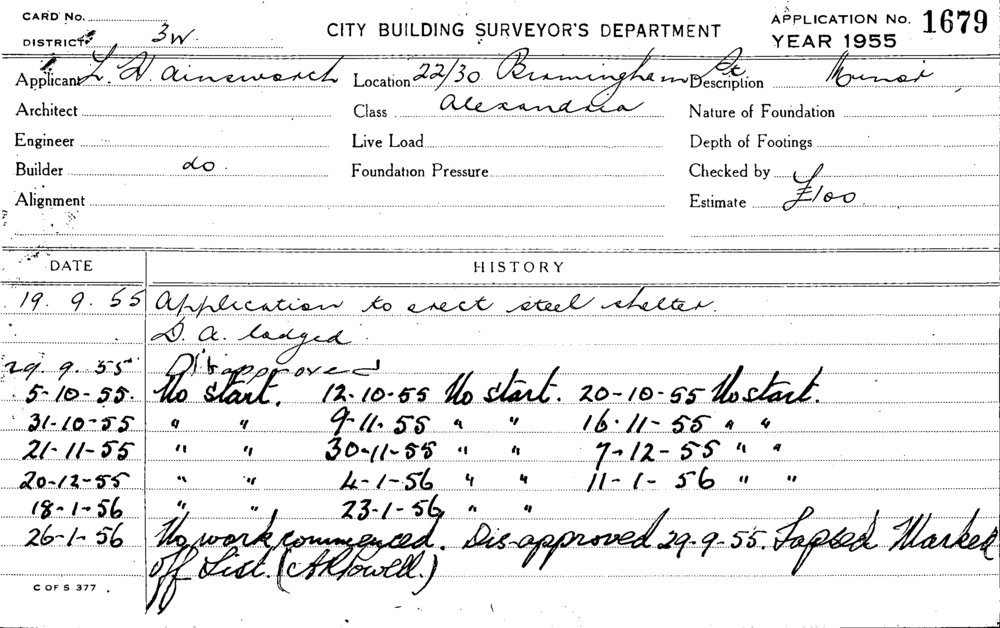 CARD No.
DISTRICT 3W
CITY BUILDING SURVEYOR'S DEPARTMENT
APPLICATION No. 1679
YEAR 1955
Applicant L. H. Ainsworth Location 22/30 Birmingham St Description Minor
Architect Class Alexandria Nature of Foundation
Engineer Live Load Depth of Footings
Builder do Foundation Pressure Checked by
Alignment Estimate £100
DATE HISTORY
19. 9. 55 Application to erect steel shelter.
D. A. lodged
29. 9. 55 Disapproved
5-10-55. No start. 12-10-55 No start. 20-10-55 No start.
31-10-55 " " 9-11-55 " " 16-11-55 " "
21-11-55 " " 30-11-55 " " 7-12-55 " "
20-12-55 " " 4-1-56 " " 11-1-56 " "
18-1-56 " " 23-1-56 " "
26-1-56 No work commenced. Dis-approved 29-9-55. Lapsed Marked
off List. (A R Powell.)
C OF S 377